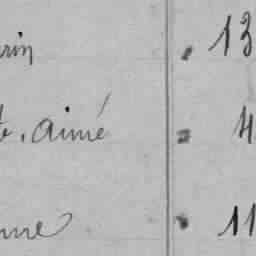 rin . 13
te. Aimé . 4
nne . 11